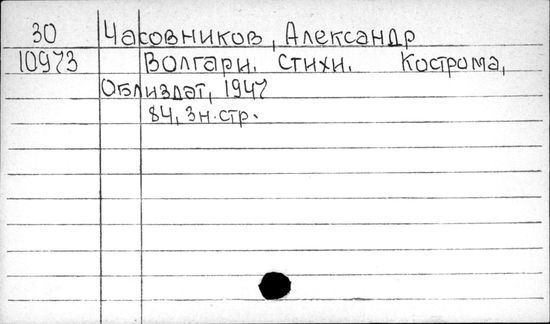 30 Часовников, Александр
10973 Волгари. Стихи. Кострома,
Облиздат, 1947
84, 3н.стр.